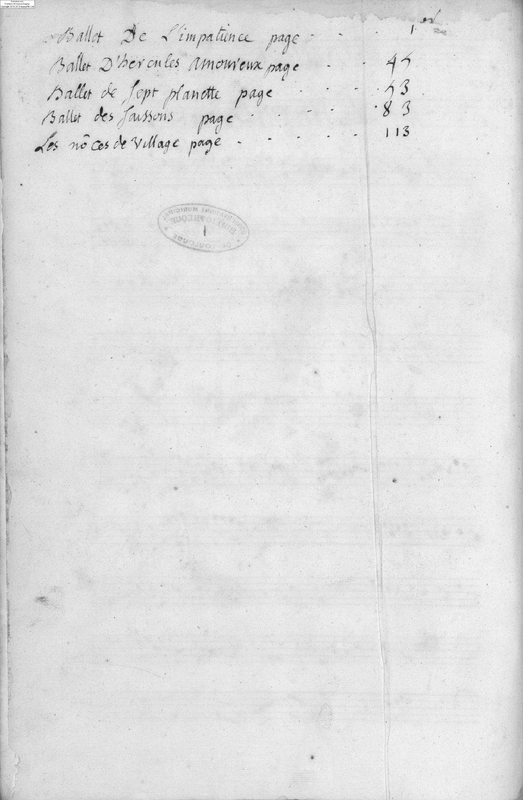 Ballet De L'impatience page - - - 1er
Ballet D'hercules Amoureux page - - - 45
Ballet de sept planette page - - - - 53
Ballet des saisons page - - - - - 83
Les nôces de village page - - - - - 113
1